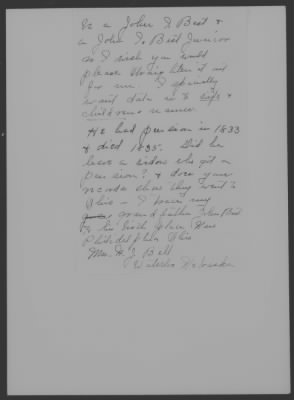 is a John T Best &
a John T. Best Junior
so I wish you would
please
for me. I specially
want data as to wife &
childrens names
He had pension in 1833
& died 1835. Did he
leave a widow who got a
pension? & does your
records show they went to
Ohio - I
grandfather John Best
& his birth place New
Philadelphia Ohio
Mrs. H. J. Bell
Waterloo Nebraska